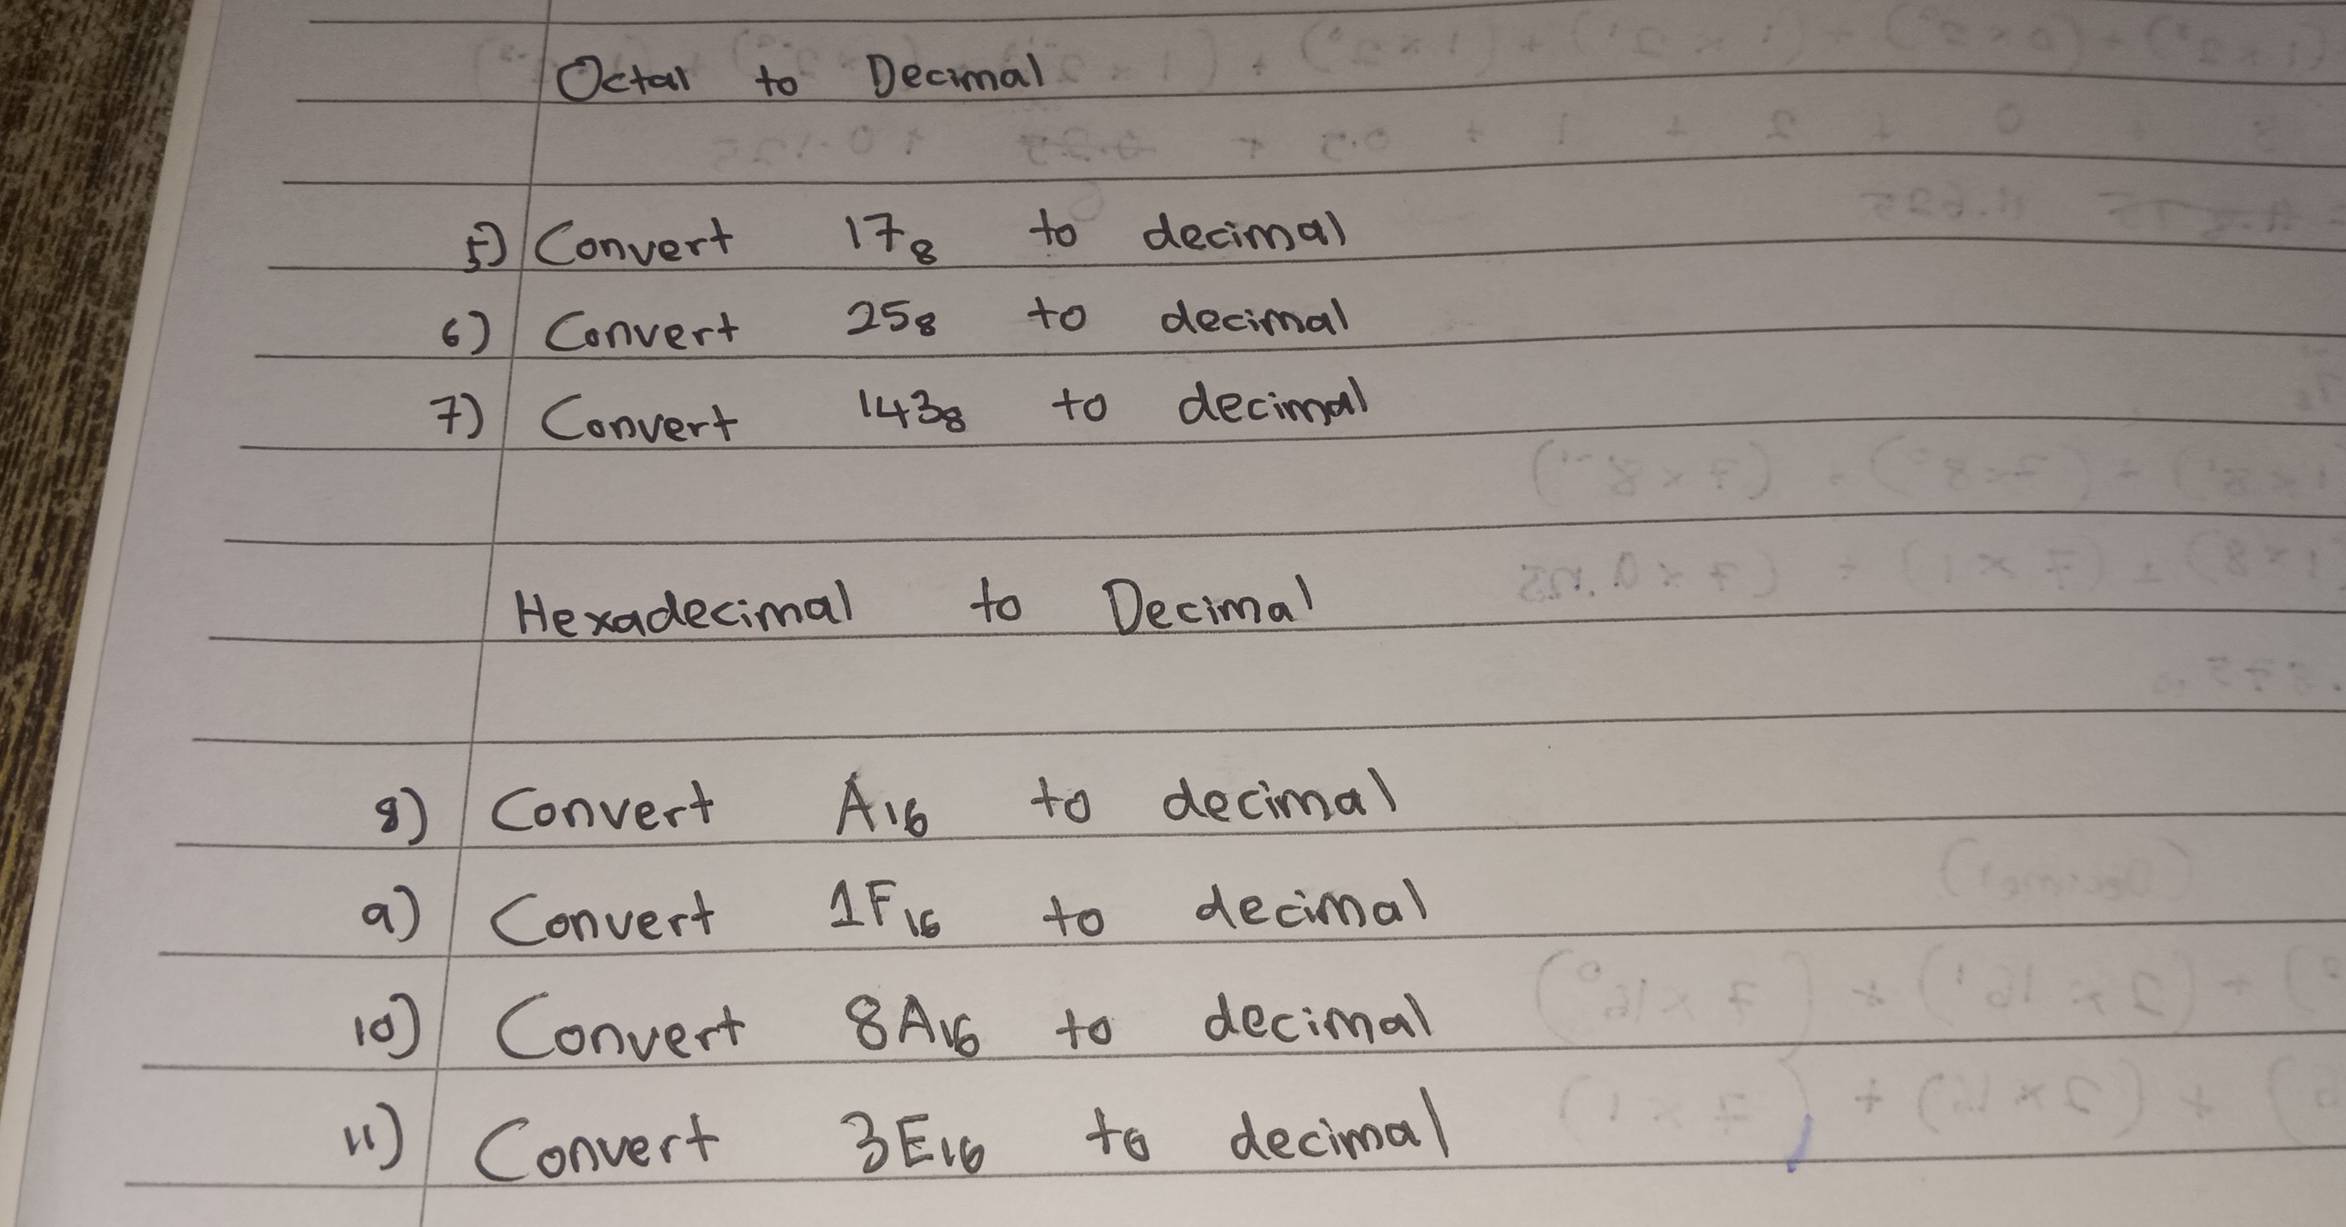 Octal to Decimal
5) Convert 17₈ to decimal
6) Convert 25₈ to decimal
7) Convert 143₈ to decimal
Hexadecimal to Decimal
8) Convert A₁₆ to decimal
9) Convert 1F₁₆ to decimal
10) Convert 8A₁₆ to decimal
11) Convert 3E₁₆ to decimal